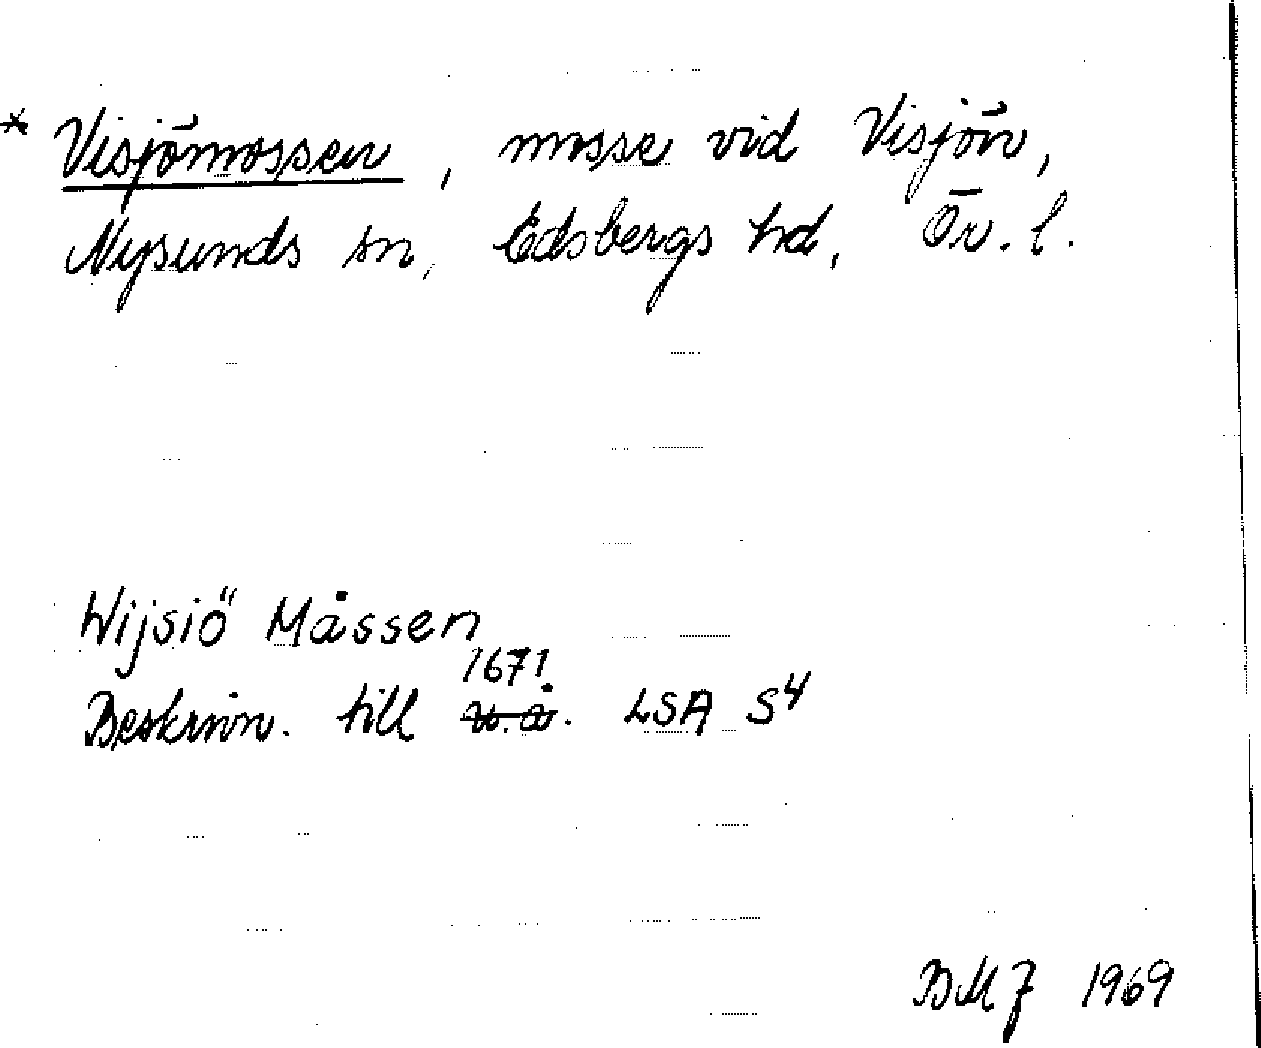 * Visjömossen, mosse vid Visjön,
Nysunds sn, Edsbergs hd, Ör. l.
Wijsiö Måssen
1671
Beskrivn. till u.å. LSA S4
BMJ 1969